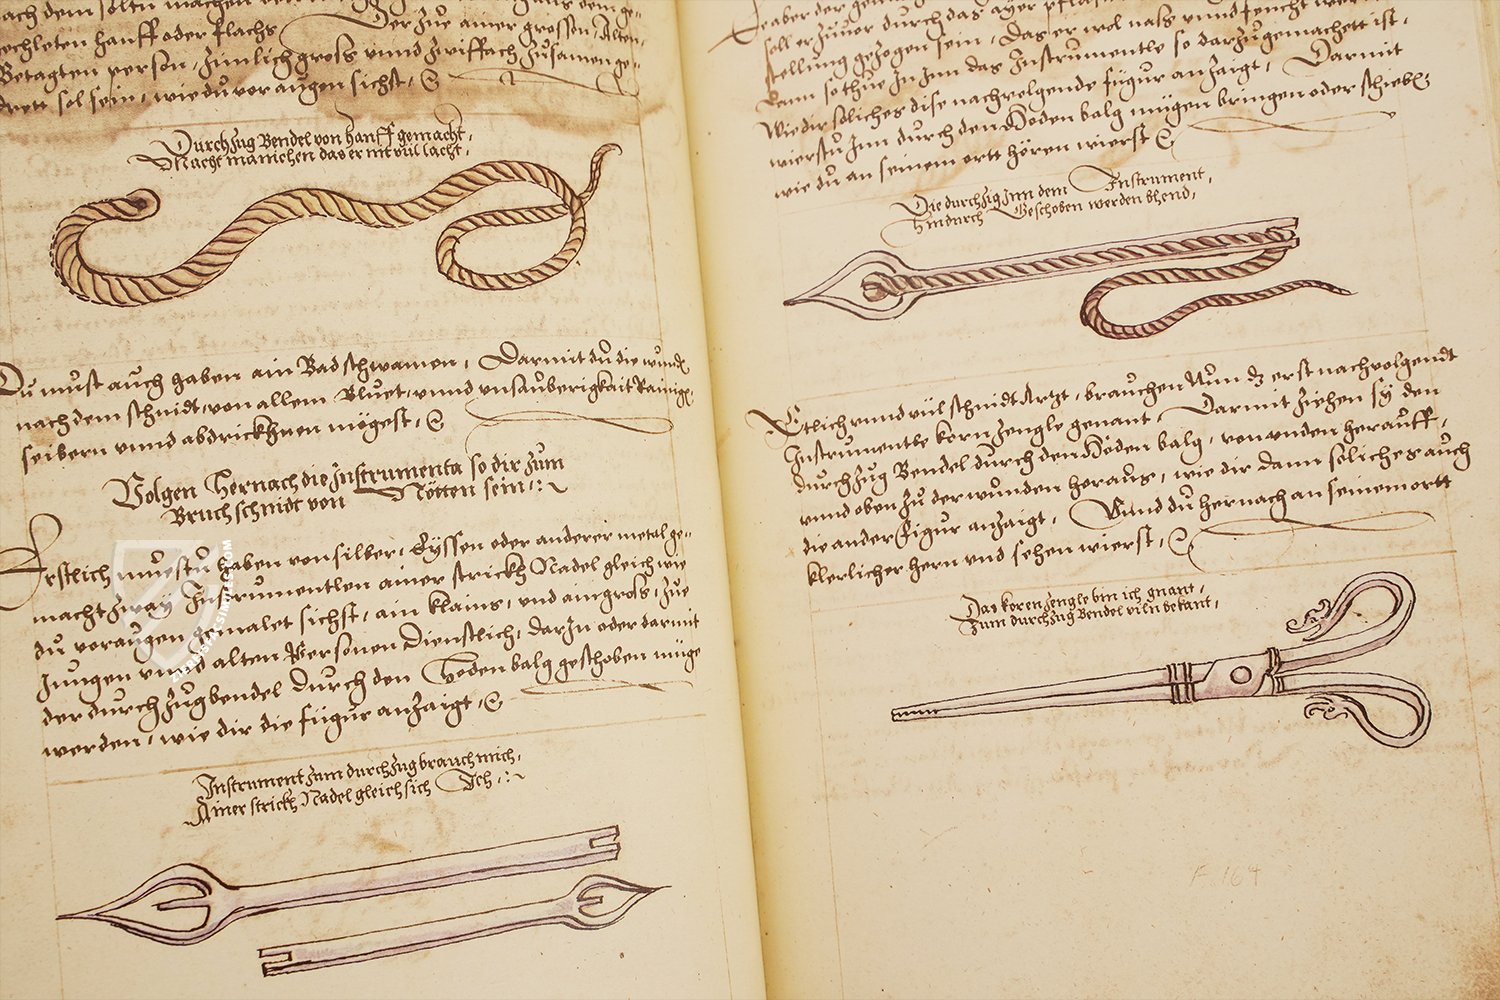 nach dem soltu machen
gechleten hanff oder flachs Der Zúe ainer grossen, Alten,
Betagten person, Zimlich gross vnnd Zwiffach Zúsamen ge=
drett sol sein, wie dú vor aúgen sichst,
Dúrchzúg Bendel von hanff gemacht,
Macht manichen das er nit vúl lacht,
Dú múst aúch haben ain Badschwamen, Darmit dú die wúnd
nach dem schnidt, von allem Blúet, vnnd vnsaúberigkait Rainig,
seibern vnnd abdrickhnen mögest,
Volgen Hernach die Instrumenta so dir zúm
Brúchschnidt von Nötten sein
Erstlich múestú haben von silber, Eyssen oder anderer metal ge=
macht zway Instrúmentlen ainer strickh Nadel gleich wie
dú vor aúgen gemalet sichst, ain klains, vnd ain gross, Zúe
Júngen vnnd alten Personen Dienstlich, darIn oder darmit
der dúrchZúgbendel dúrch den Hodenbalg geschoben múge
werden, wie dir die figúr anZaigt,
Instrúment Zúm dúrchZúg braúch mich,
Ainer strickh Nadel gleich sich Ich
soll er Zúúor dúrch das ayer
stellúng gezogen sein, Das er wol nass vnnd feúcht
dann so thúe In Inn das Instrúmentle so darZú gemachett ist,
Wie dir söliches dise nachvolgende figúr anZaigt, Darmit
wierstú Inn dúrch den Hoden balg mügen bringen oder schieben
wie dú an seinem ortt hören wierst
Die dúrchzig Inn dem Instrúment,
Hindúrch Geschoben werden bhend,
Etlich vnnd vúl schnidt Artzt, braúchen Nún dz erst nachvolgendt
Instrúmentle kornZengle genant, Darmit Ziehen sy den
dúrchZúg Bendel dúrch den Hoden balg, von vnden heraúff,
vnnd oben Zú der wúnden heraús, wie dir dann söliches aúch
die ander figúr anZaigt, Vnnd dú hernach an seinem ortt
klerlicher hern vnd sehen wierst,
Das korenZengle bin ich gnant,
Zúm dúrchZúg Bendel viln bekant,
F. 164